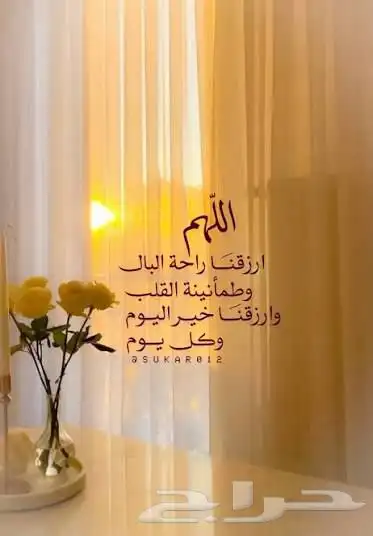 اللّهم
ارزقنا راحة البال
وطمأنينة القلب
وارزقنا خير اليوم
وكل يوم
@SUKAR012
حراج